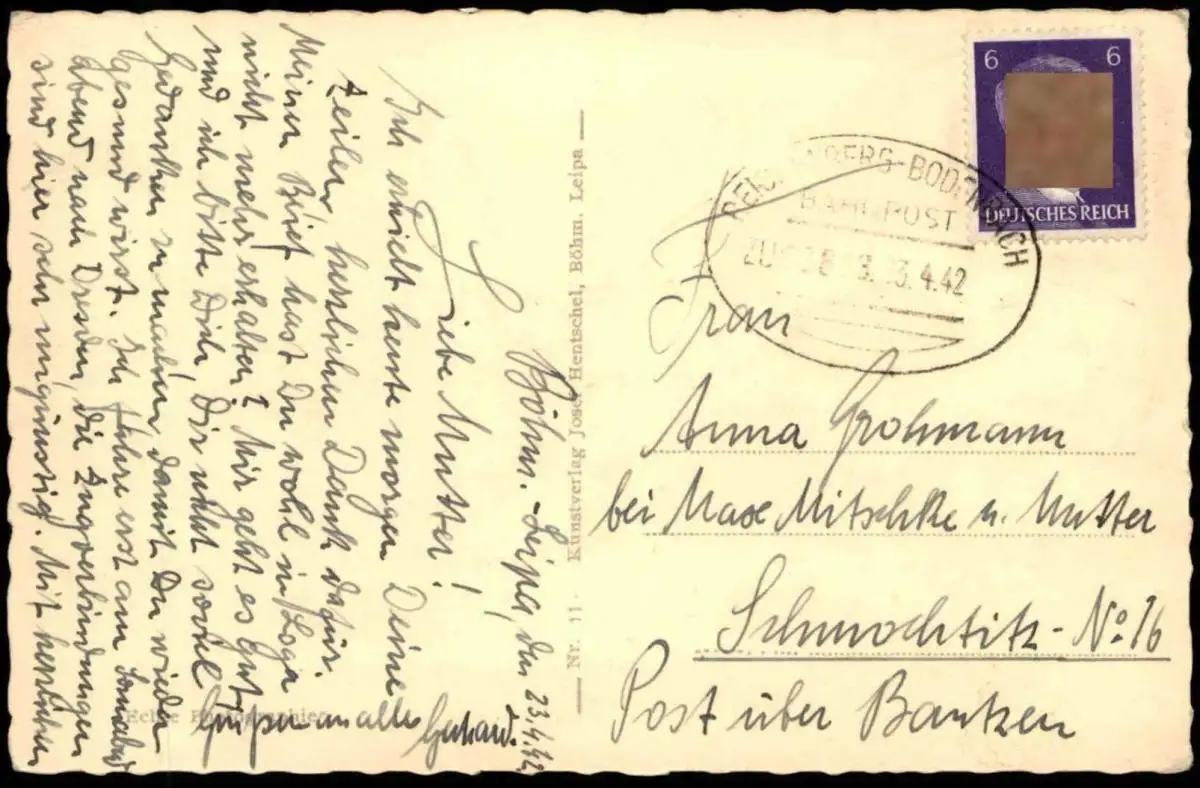 Böhm.-Leipa, den 23.4.42
Liebe Mutter!
Ich erhielt heute morgen Deine
Zeilen, herzlichen Dank dafür.
Meinen Brief hast Du wohl in
nicht mehr erhalten? Mir geht es gut
und ich bitte Dich, Dir nicht soviel
Gedanken zu machen, damit Du wieder
gesund wirst. Ich fahre erst am Sonnabend
abend nach Dresden, die Zugverbindungen
sind hier sehr ungünstig. Mit herzlichen
Grüßen an alle Gerhard.
Echte
Nr. 11 Kunstverlag Josef Hentschel, Böhm. Leipa
6 6
DEUTSCHES REICH
REICHENBERG-BODENBACH
BAHNPOST
ZUG 4.42
Frau
Anna Grohmann
bei Max Mitschke u. Mutter
Schmochtitz - No 16
Post über Bautzen